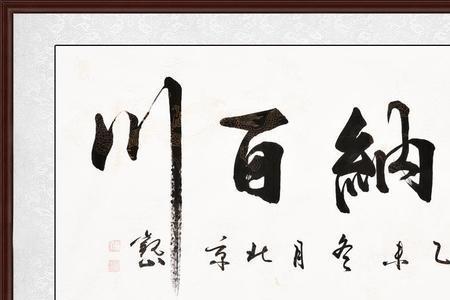 納百川
乙未冬月北京